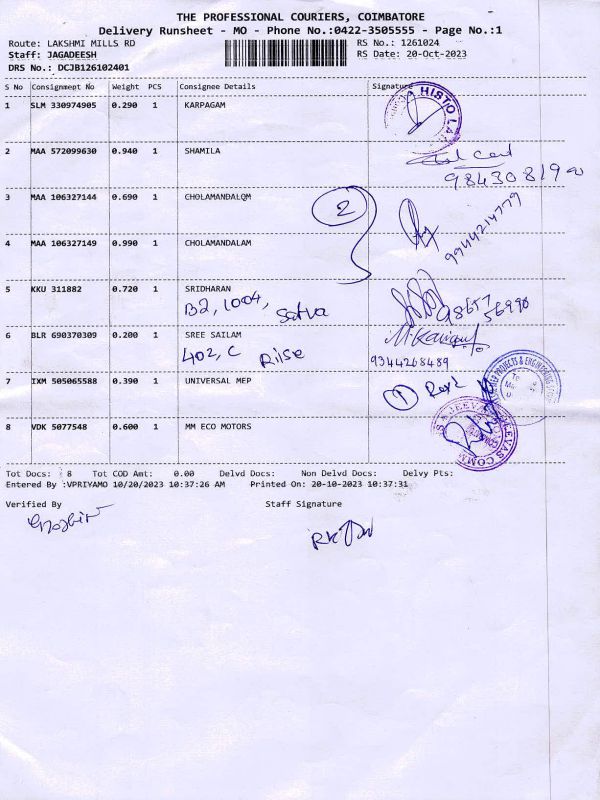 THE PROFESSIONAL COURIERS, COIMBATORE
Delivery Runsheet - MO - Phone No.:0422-3505555 - Page No.:1
Route: LAKSHMI MILLS RD RS No.: 1261024
Staff: JAGADEESH RS Date: 20-Oct-2023
DRS No.: DCJB126102401
S No Consignmept No Weight PCS Consignee Details Signature
1 SLM 330974905 0.290 1 KARPAGAM
HISTO LA
2 MAA 572099630 0.940 1 SHAMILA
984308190
3 MAA 106327144 0.690 1 CHOLAMANDALOM
2
9944214779
4 MAA 106327149 0.990 1 CHOLAMANDALAM
5 KKU 311882 0.720 1 SRIDHARAN
B2, 1004, Satva
98657 56990
6 BLR 690370309 0.200 1 SREE SAILAM
402, C Rilse
9344268489
7 IXM 505065588 0.390 1 UNIVERSAL MEP
1
PROJECTS & ENGINEERING
8 VDK 5077548 0.600 1 MM ECO MOTORS
Tot Docs: 8 Tot COD Amt: 0.00 Delvd Docs: Non Delvd Docs: Delvy Pts:
Entered By :VPRIYAMO 10/20/2023 10:37:26 AM Printed On: 20-10-2023 10:37:31
Verified By Staff Signature